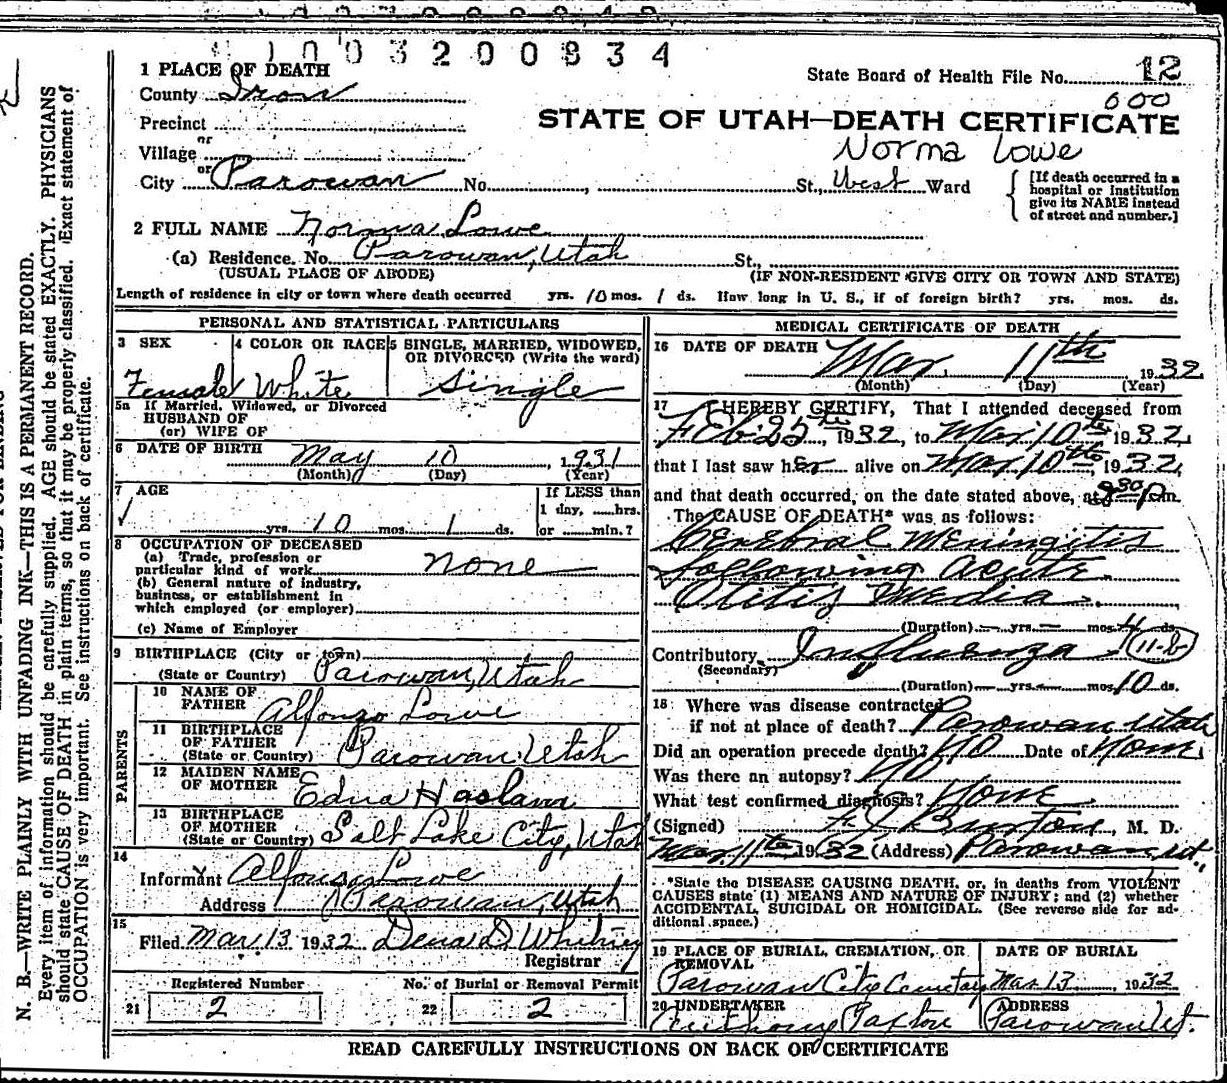 1003200834
1 PLACE OF DEATH
State Board of Health File No. 12
County Iron
600
Precinct
STATE OF UTAH—DEATH CERTIFICATE
or
Village
Norma Lowe
or
City Parowan No. , St., West Ward
[If death occurred in a hospital or institution give its NAME instead of street and number.]
2 FULL NAME Norma Lowe
(a) Residence. No. Parowan, Utah St.,
(USUAL PLACE OF ABODE) (IF NON-RESIDENT GIVE CITY OR TOWN AND STATE)
Length of residence in city or town where death occurred yrs. 10 mos. 1 ds. How long in U. S., if of foreign birth? yrs. mos. ds.
PERSONAL AND STATISTICAL PARTICULARS
3 SEX
Female
4 COLOR OR RACE
White
5 SINGLE, MARRIED, WIDOWED, OR DIVORCED (Write the word)
Single
5a If Married, Widowed, or Divorced
HUSBAND OF
(or) WIFE OF
6 DATE OF BIRTH May 10, 1931
(Month) (Day) (Year)
7 AGE
yrs. 10 mos. 1 ds.
If LESS than
1 day, ......hrs.
or ........min.?
8 OCCUPATION OF DECEASED
(a) Trade, profession or
particular kind of work none
(b) General nature of industry,
business, or establishment in
which employed (or employer)
(c) Name of Employer
9 BIRTHPLACE (City or town)
(State or Country) Parowan, Utah
PARENTS
10 NAME OF
FATHER Alfonzo Lowe
11 BIRTHPLACE
OF FATHER
(State or Country) Parowan Utah
12 MAIDEN NAME
OF MOTHER Edna Haslam
13 BIRTHPLACE
OF MOTHER
(State or Country) Salt Lake City, Utah
14
Informant Alfonso Lowe
Address Parowan, Utah
15
Filed Mar 13 1932 Dena D. Whitney
Registrar
Registered Number No. of Burial or Removal Permit
21 2 22 2
MEDICAL CERTIFICATE OF DEATH
16 DATE OF DEATH Mar 11th 1932
(Month) (Day) (Year)
17 I HEREBY CERTIFY, That I attended deceased from
Feb 25th, 1932, to Mar 10th 1932,
that I last saw her alive on Mar 10th, 1932,
and that death occurred, on the date stated above, at 830 p.m.
The CAUSE OF DEATH* was as follows:
Cerebral Meningitis
following acute
Otitis Media
(Duration) — yrs. — mos. 4 ds.
Contributory Influenza 11-b
(Secondary)
(Duration) — yrs. — mos. 10 ds.
18 Where was disease contracted
if not at place of death? Parowan Utah
Did an operation precede death? No Date of None
Was there an autopsy? No
What test confirmed diagnosis? None
(Signed) Burton, M. D.
Mar 11th 1932 (Address) Parowan Ut.
*State the DISEASE CAUSING DEATH, or, in deaths from VIOLENT
CAUSES state (1) MEANS AND NATURE OF INJURY; and (2) whether
ACCIDENTAL, SUICIDAL OR HOMICIDAL. (See reverse side for ad-
ditional space.)
19 PLACE OF BURIAL, CREMATION, OR
REMOVAL
Parowan City Cemetary
DATE OF BURIAL
Mar 13, 1932
20 UNDERTAKER
Anthony Paxton
ADDRESS
Parowan Ut.
READ CAREFULLY INSTRUCTIONS ON BACK OF CERTIFICATE
N. B.—WRITE PLAINLY WITH UNFADING INK—THIS IS A PERMANENT RECORD.
Every item of information should be carefully supplied. AGE should be stated EXACTLY. PHYSICIANS
should state CAUSE OF DEATH in plain terms, so that it may be properly classified. Exact statement of
OCCUPATION is very important. See instructions on back of certificate.